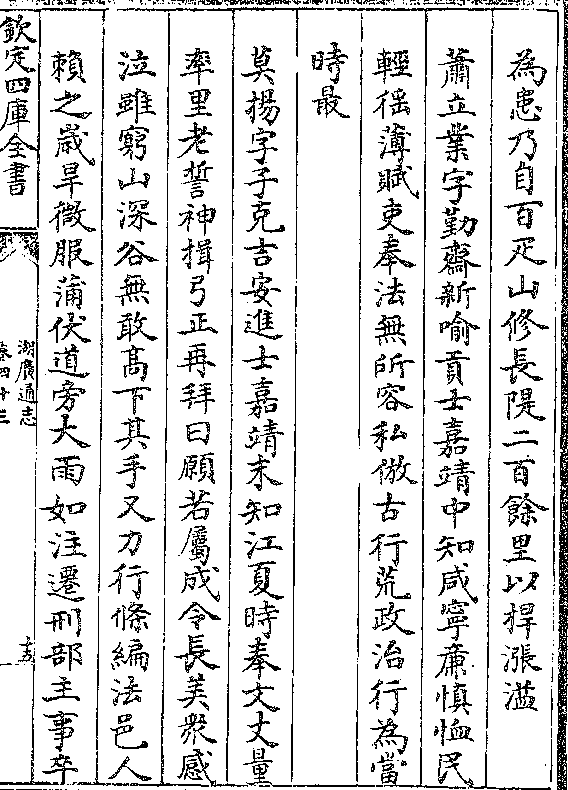 為患乃自百疋山修長隄二百餘里以捍漲溢
蕭立業字勤齋新喻貢士嘉靖中知咸寧亷慎恤民
輕徭薄賦吏奉法無所容私倣古行荒政治行為當
時最
莫揚字子克吉安進士嘉靖末知江夏時奉文丈量
率里老誓神揖弓正再拜曰願若屬成令長美衆感
泣雖窮山深谷無敢髙下其手又力行條編法邑人
賴之歲旱微服蒲伏道旁大雨如注遷刑部主事卒
欽定四庫全書
湖廣通志
卷四十三
五